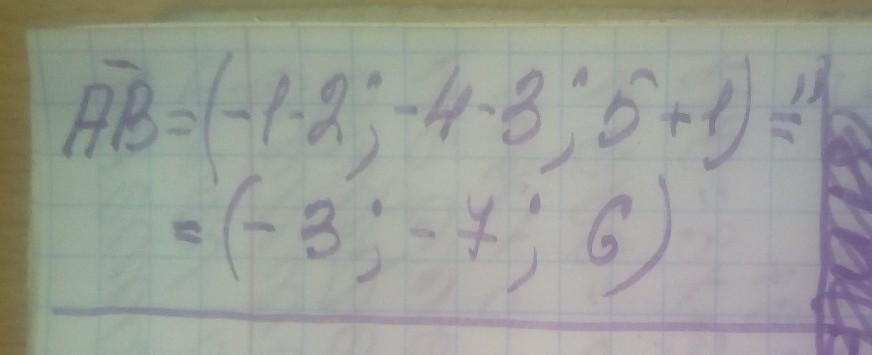 AB̅=(-1-2; -4-3; 5+1)=
=(-3; -7; 6)